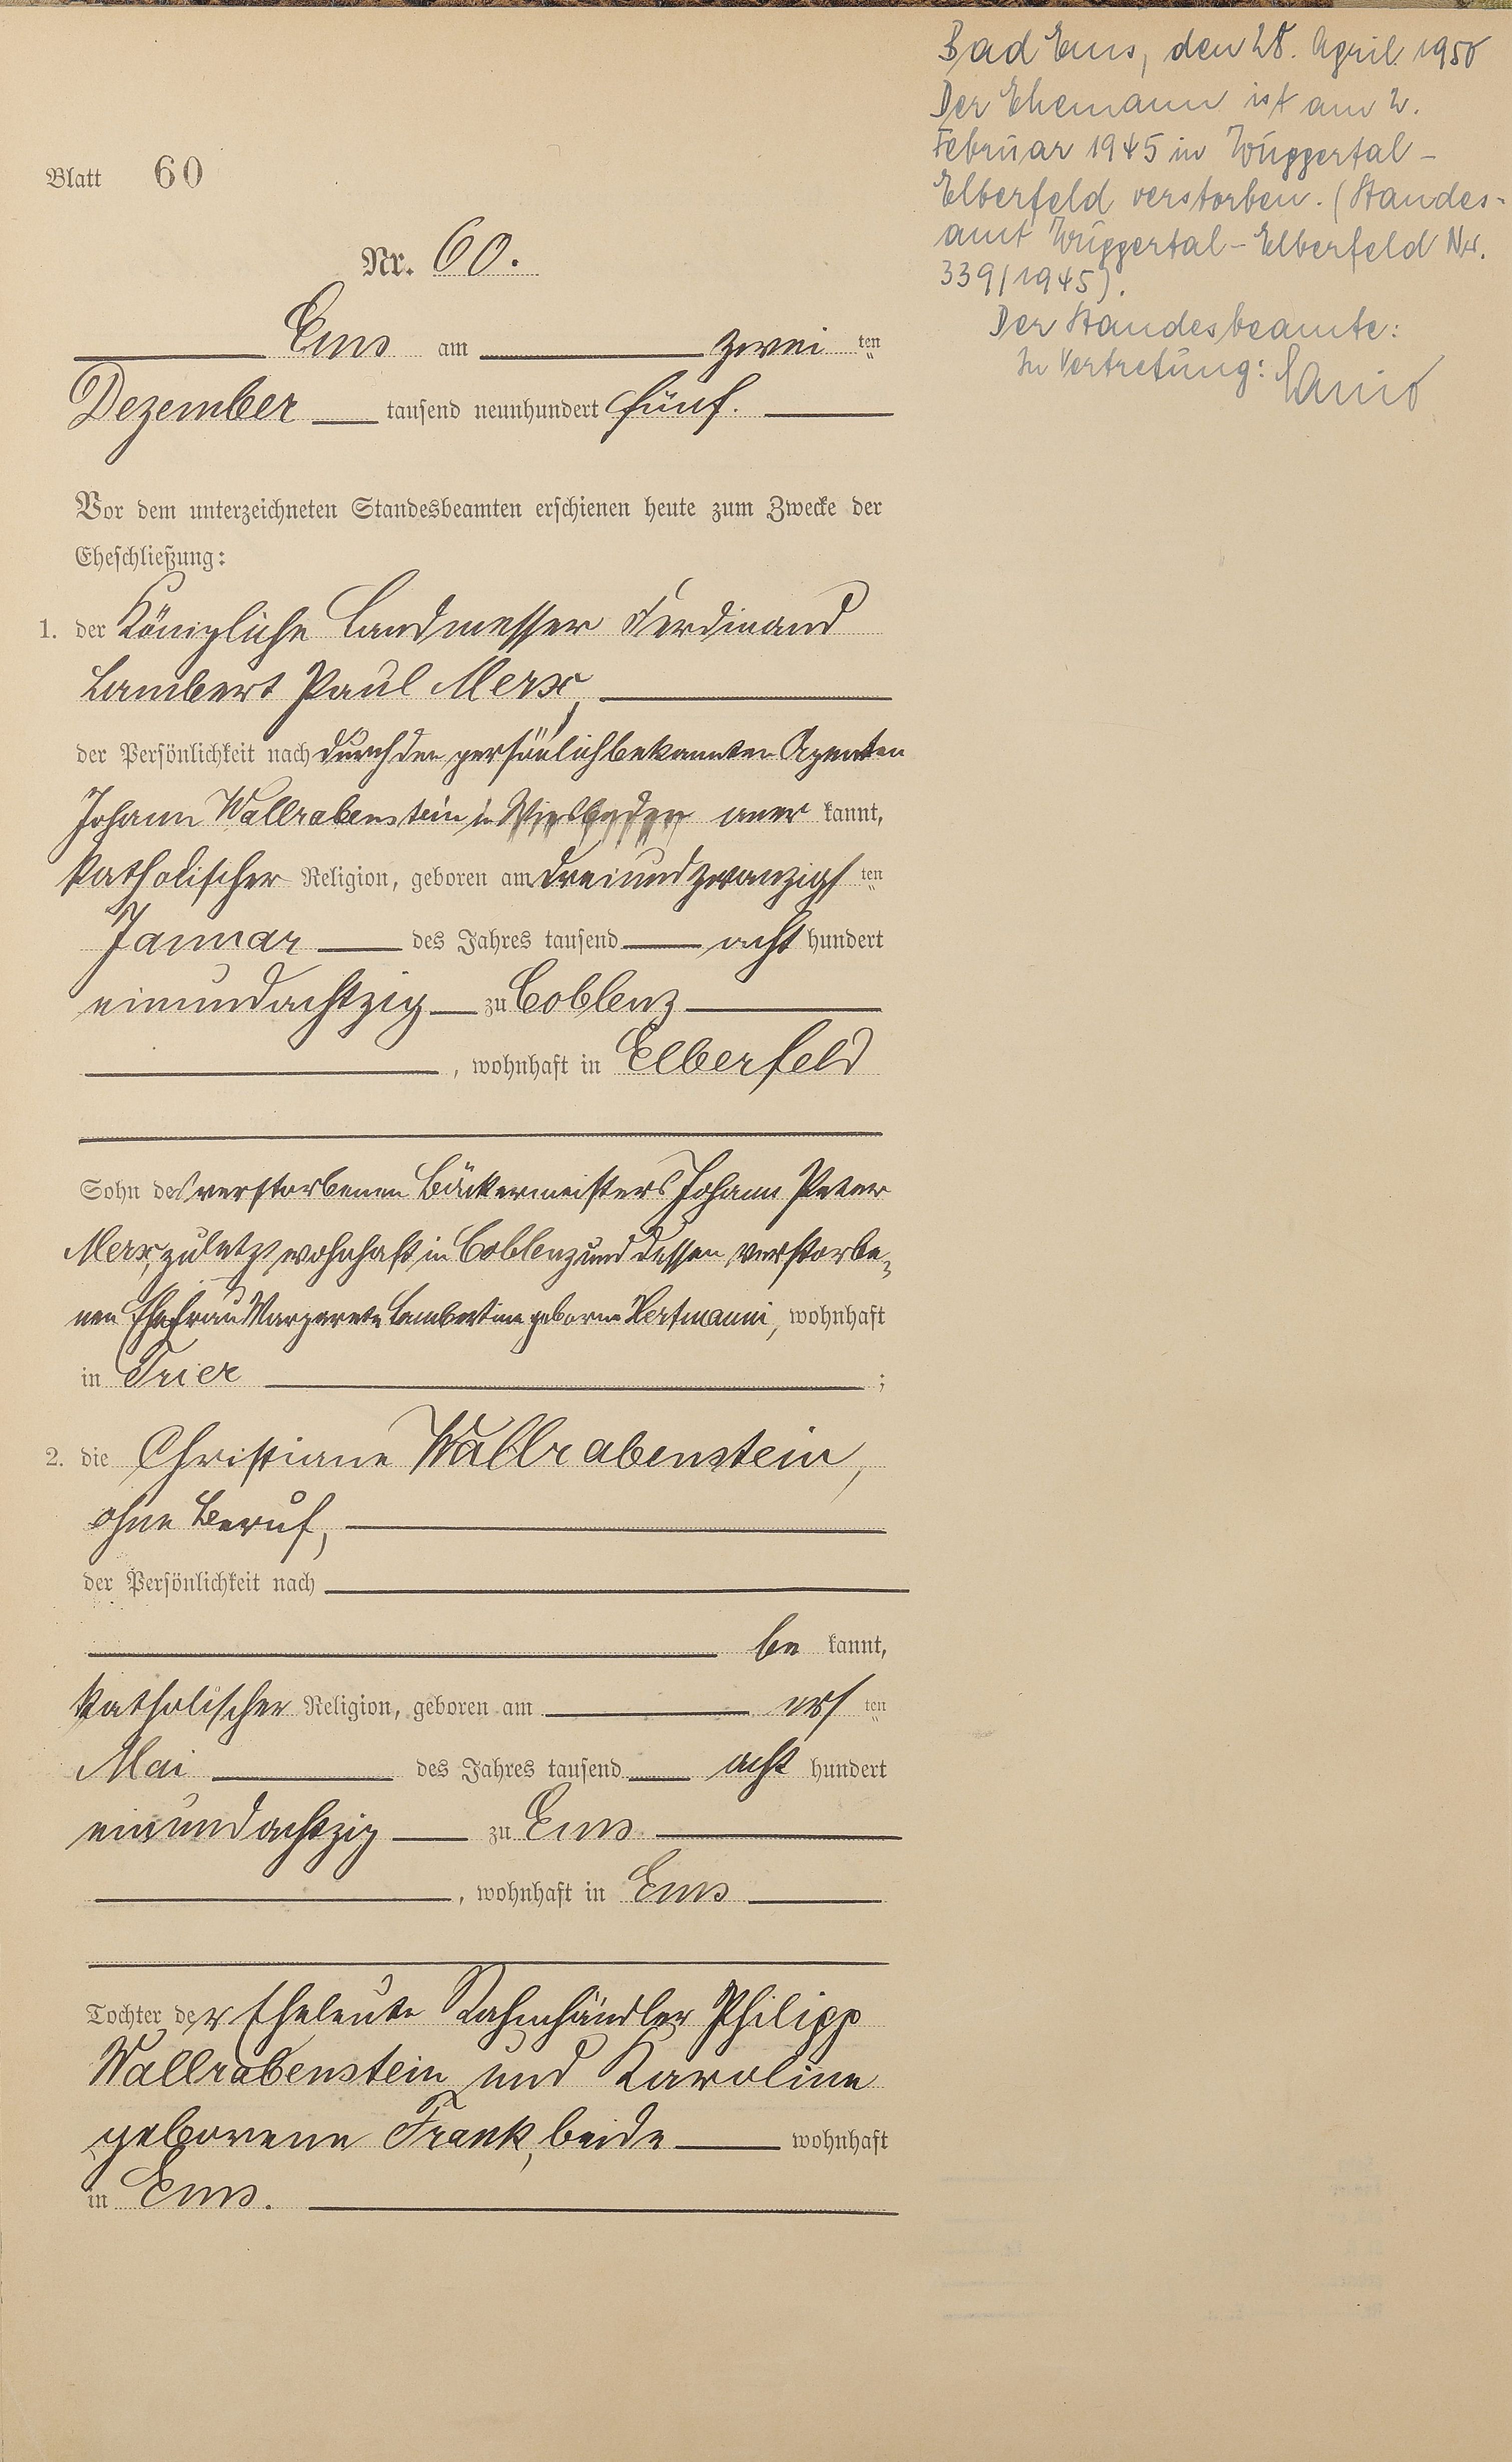 Blatt 60
Nr. 60.
Ems am zwei ten
Dezember tausend neunhundert fünf.
Vor dem unterzeichneten Standesbeamten erschienen heute zum Zwecke der
Eheschließung:
1. der Königliche Landmesser Ferdinand
Lambert Paul Merx,
der Persönlichkeit nach durch den persönlich bekannten Agenten
Johann Wallrabenstein in Wiesbaden aner kannt,
katholischer Religion, geboren am dreiundzwanzigs ten
Januar des Jahres tausend acht hundert
einundachtzig zu Coblenz
, wohnhaft in Elberfeld
Sohn des verstorbenen Bäckermeisters Johann Peter
Merx, zuletzt wohnhaft in Coblenz und dessen verstorbe-
nen Ehefrau Margarete Lambertine geborne Hertmanni, wohnhaft
in Trier ;
2. die Christiane Wallrabenstein,
ohne Beruf,
der Persönlichkeit nach
be kannt,
katholischer Religion, geboren am ers ten
Mai des Jahres tausend acht hundert
einundachtzig zu Ems
, wohnhaft in Ems
Tochter der Eheleute Philipp
Wallrabenstein und Karoline
geborene Frank, beide wohnhaft
in Ems.
Bad Ems, den 28. April 1950
Der Ehemann ist am 2.
Februar 1945 in Wuppertal-
Elberfeld verstorben. (Standes-
amt Wuppertal-Elberfeld Nr.
339/1945).
Der Standesbeamte:
In Vertretung: